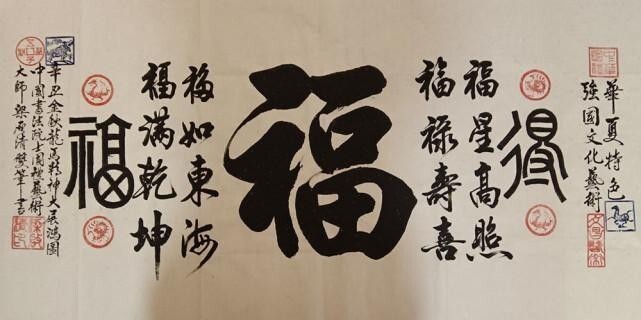 華夏特色
強國文化藝術
得
福星高照
福祿壽喜
福
福如東海
福滿乾坤
福
辛丑金秋龍馬乾坤大展鴻圖
中國書法院士國粹藝術
大師 梁 清 筆書